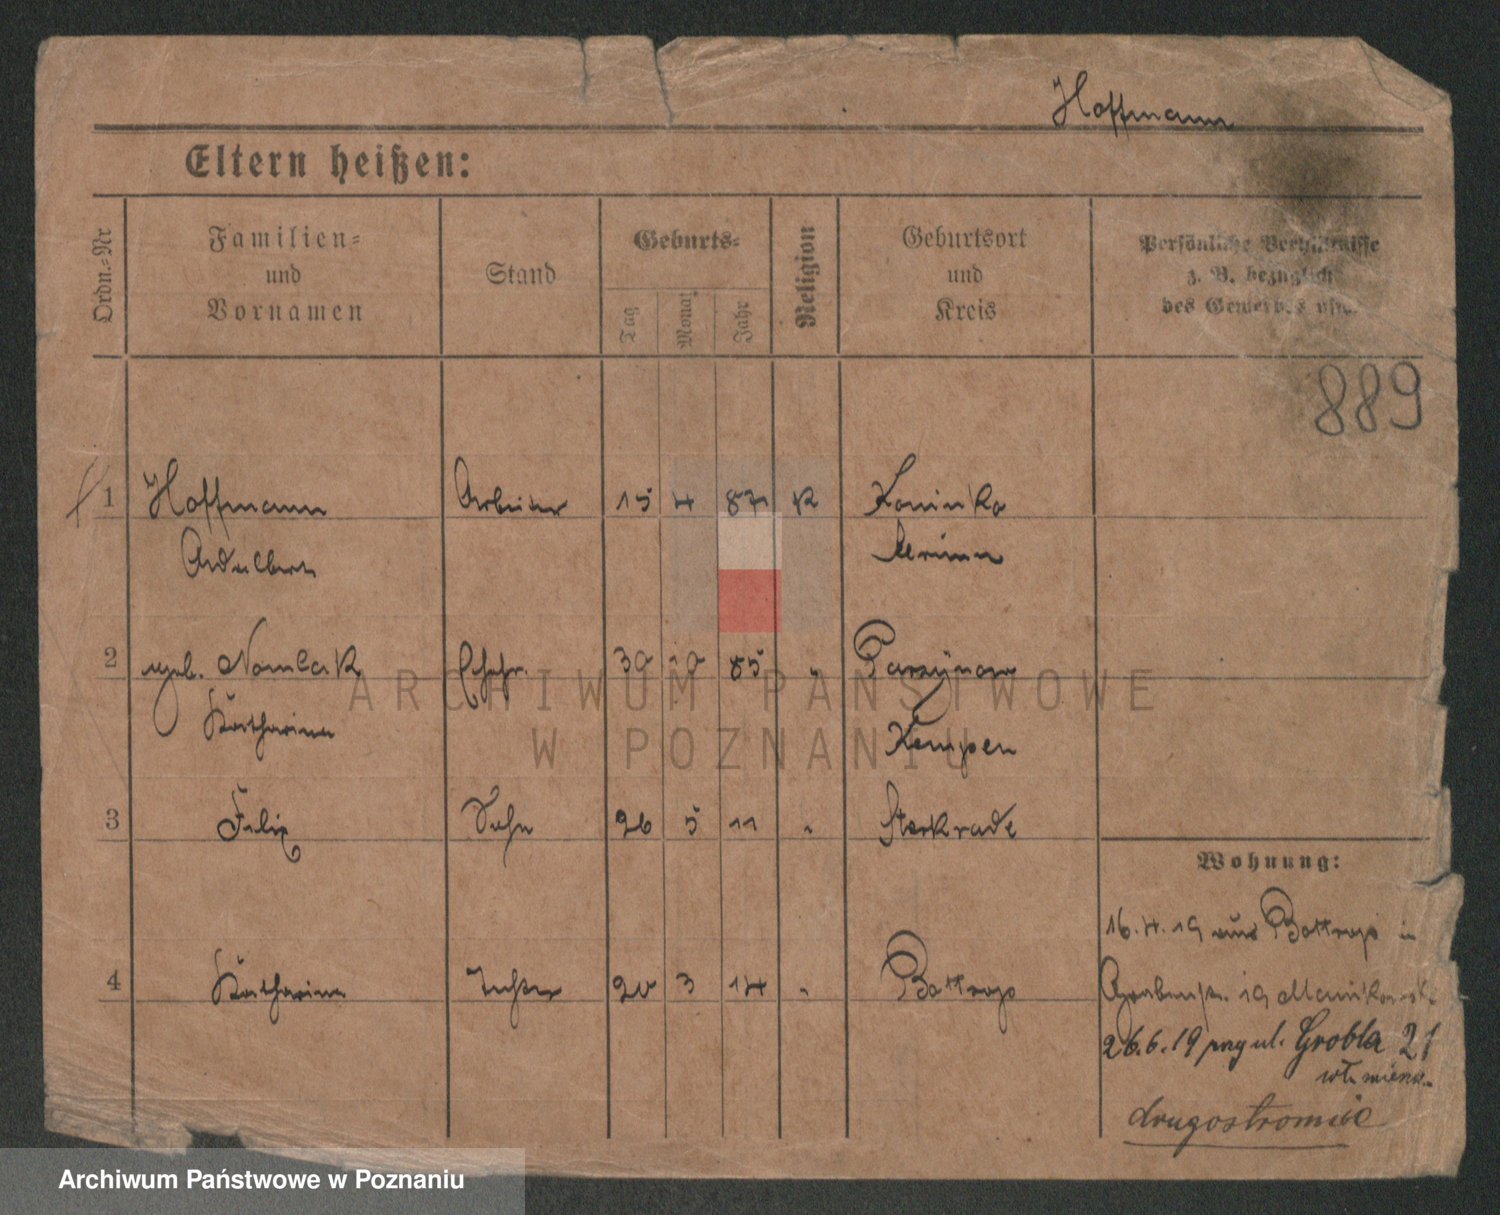 Hoffmann
Eltern heißen:
Ordn.-Nr
Familien-
und
Vornamen
Stand
Geburts-
Tag
Monat
Jahr
Religion
Geburtsort
und
Kreis
Persönliche Verhältnisse
z. B. bezüglich
des Gewerbes usw.
889
1 Hoffmann Arbeiter 15 4 87 K
Adalbert
2 geb. Nowak Ehefr. 30 10 85 " Parzynow
Katharina Kempen
3 Felix Sohn 26 5 11 " Sterkrade
Wohnung:
16.4.19 aus Bottrop in
4 Katharina Tochter 20 3 14 " Bottrop
Grabenstr. 19
26.6.19 przy ul. Grobla 21
wł. mieszk.
drugostronnie
ARCHIWUM PAŃSTWOWE
W POZNANIU
Archiwum Państwowe w Poznaniu